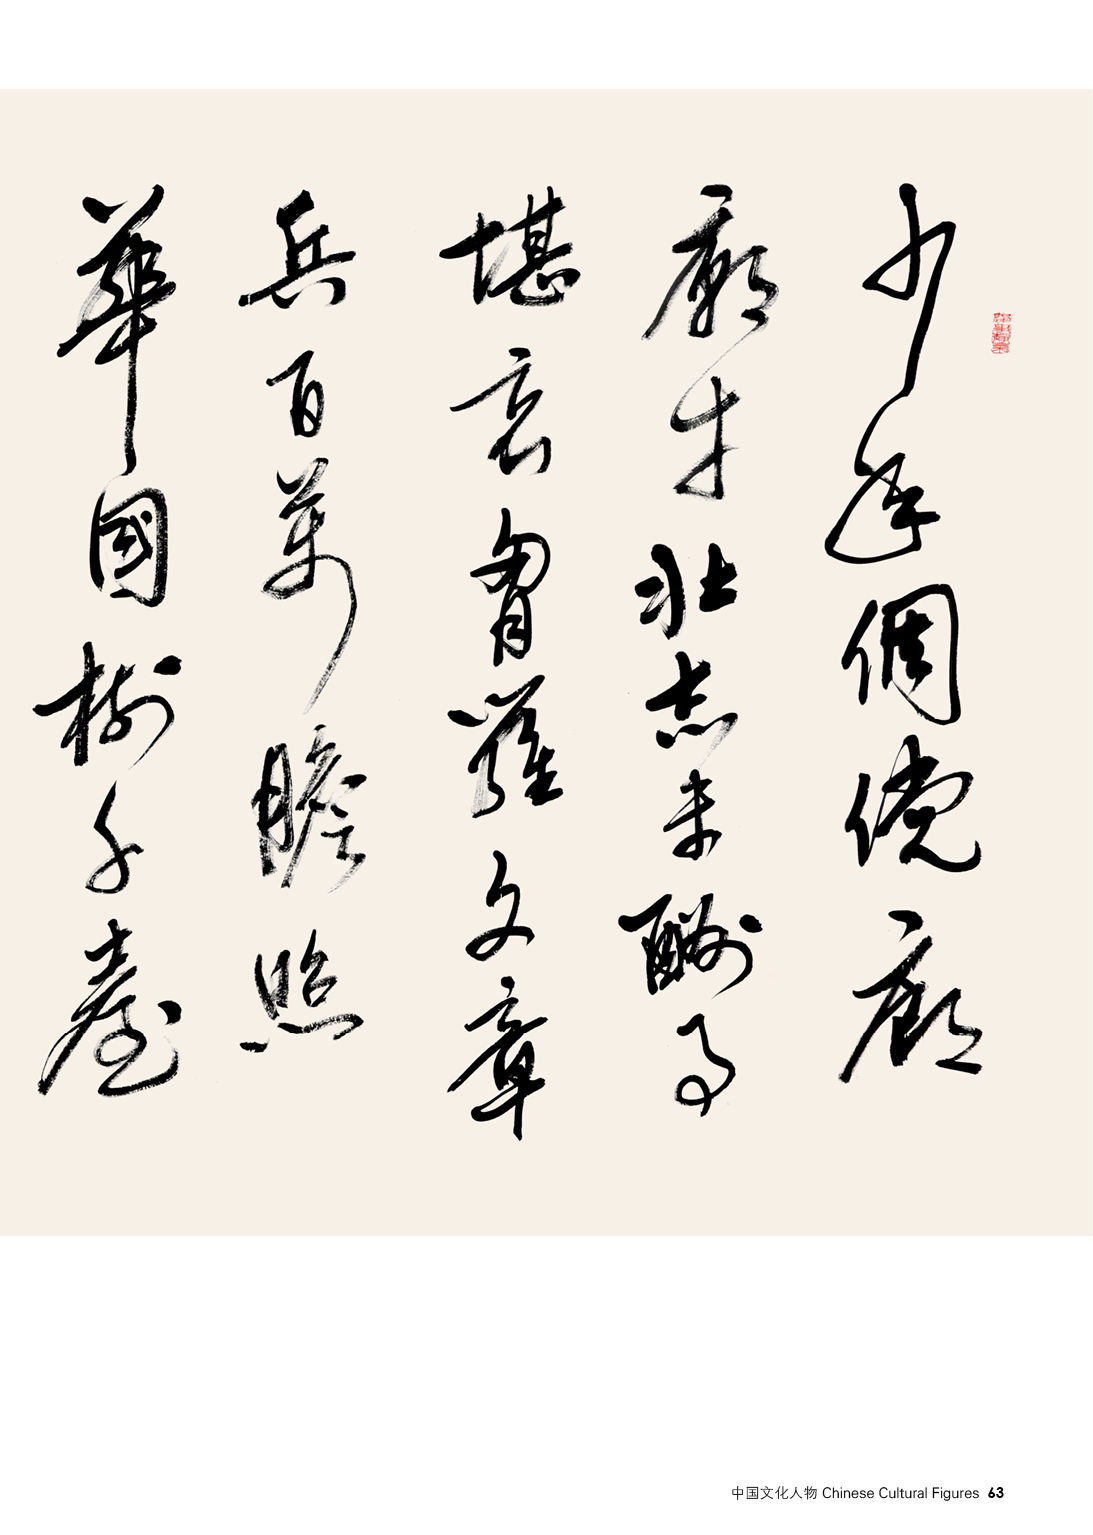 少年倜儻廊
廟才壯志未酬事
堪哀胷羅文章
兵百萬膽照
華國樹千臺
中国文化人物 Chinese Cultural Figures 63